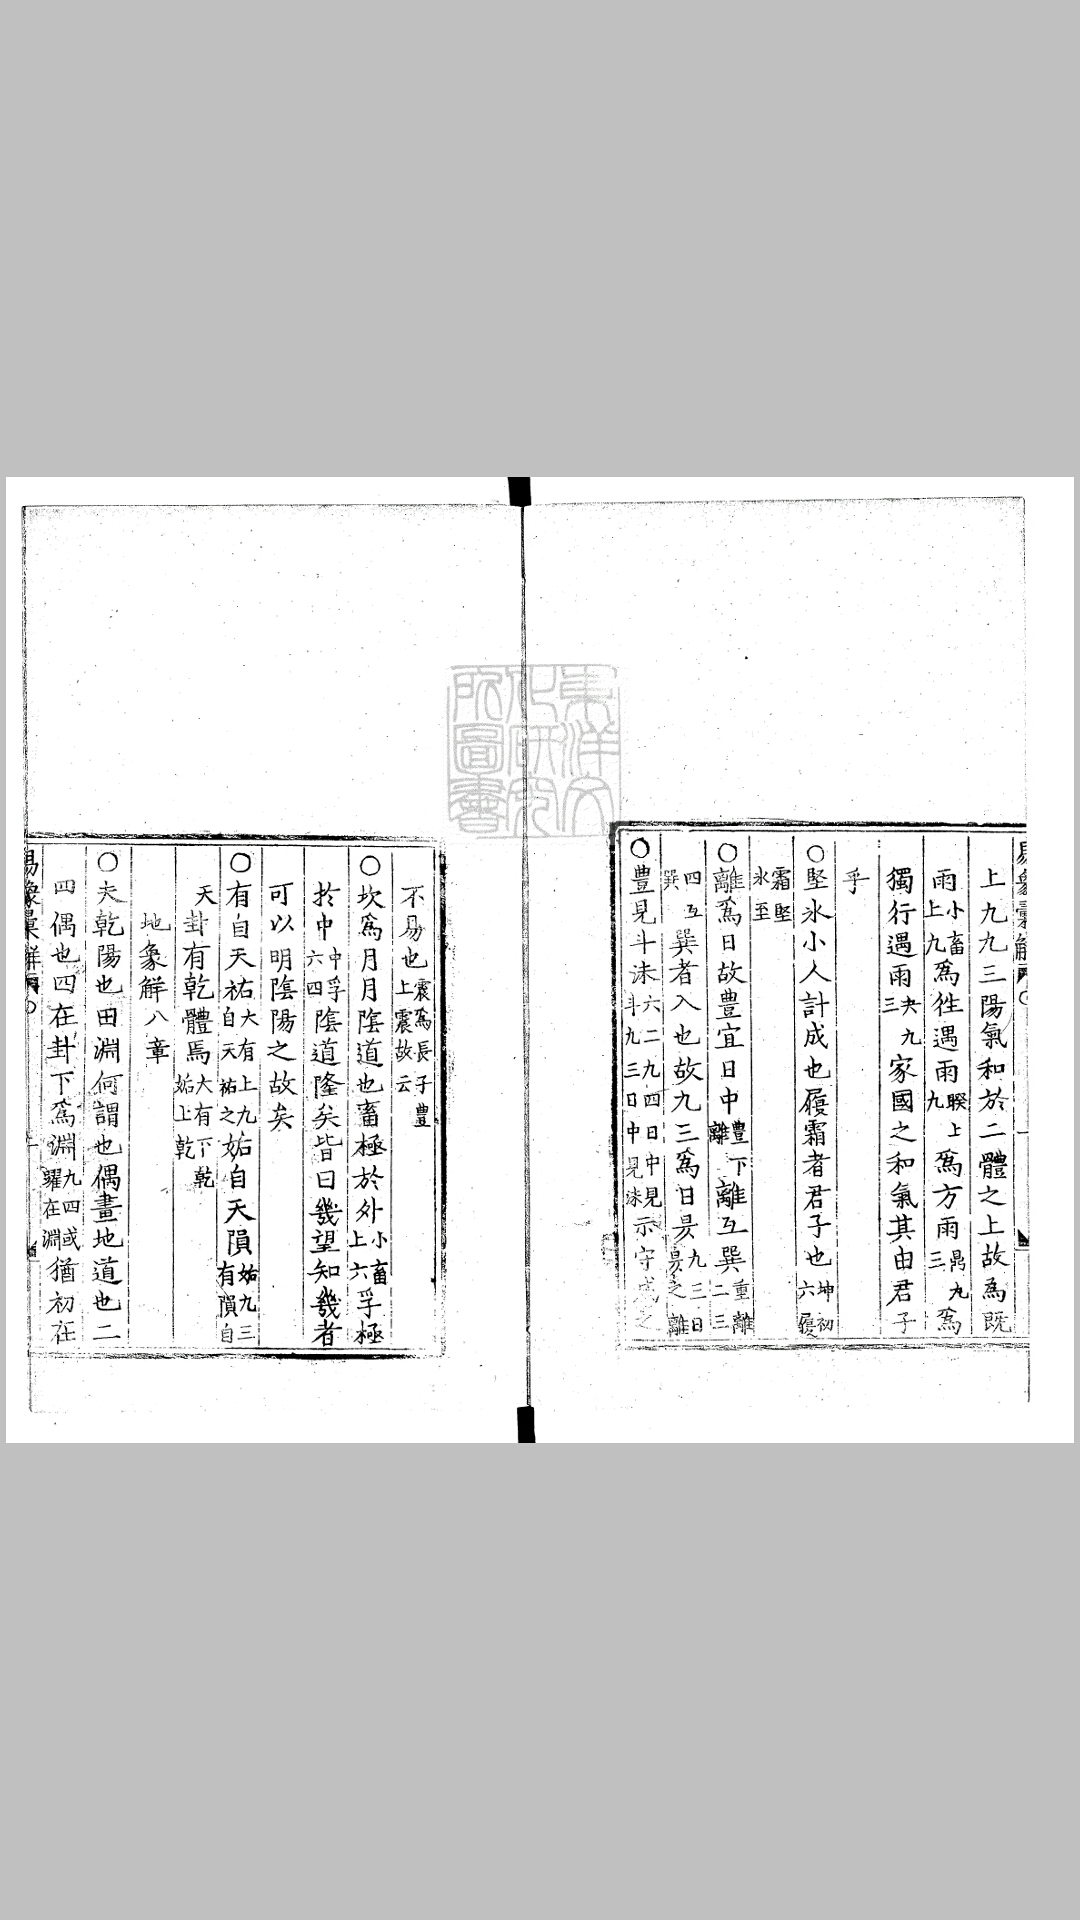 上九九三陽氣和於二體之上故為既
雨小畜上九為往遇雨睽上九為方雨鼎九三為
獨行遇雨夬九三家國之和氣其由君子
乎
○堅氷小人計成也履霜者君子也坤初六履
霜堅氷至
○離為日故豊宜日中豊下離離互巽重離二三
四互巽巽者入也故九三為日昃九三日昃之離
○豊見斗沬六二九四日中見斗九三日中見沬示守成之
不易也震為長子豊上震故云
○坎為月月陰道也畜極於外小畜上六孚極
於中中孚六四陰道隆矣皆曰幾望知幾者
可以明陰陽之故矣
○有自天祐大有上九自天祐之姤自天隕姤九三有隕自
天卦有乾體焉大有下乾姤上乾
地象解八章
○夫乾陽也田淵何謂也偶畫地道也二
四偶也四在卦下為淵九四或躍在淵猶初在
易象彙解
東洋文化研究所圖書